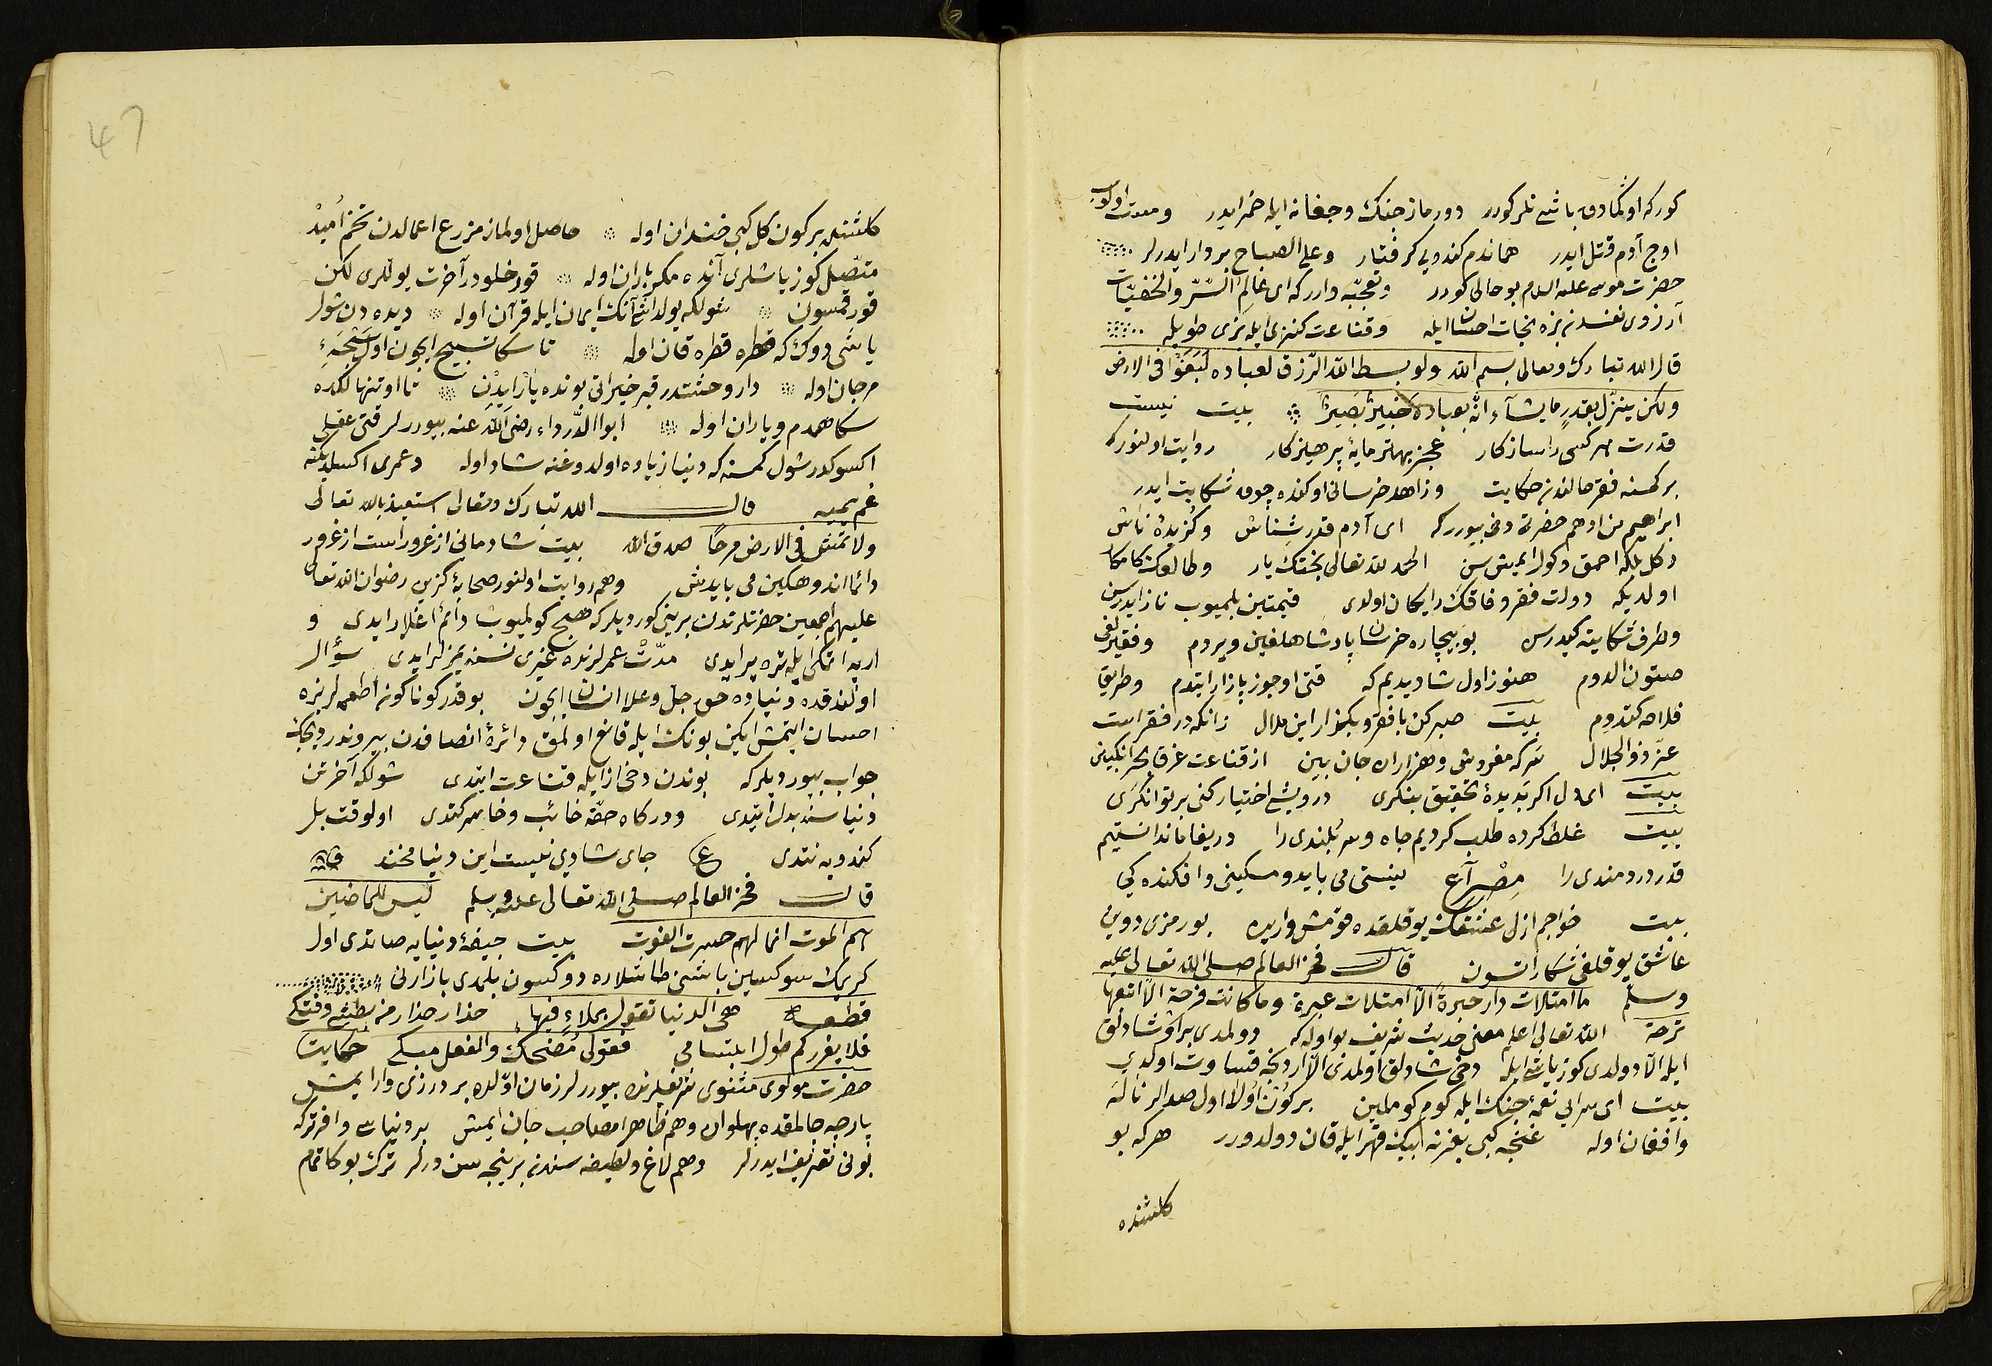 كوركه اوكمادق باشى نلر كورر دورماز جنك وجغانه ايله خمر ايدر ومست اولوب
اوج آدم قتل ايدر هماندم كندويى كرفتار وعلى الصباح بردار ايدرلر
حضرت موسى عليه السلام بو حالى كورر وتعجبه وارر كه اى عالم السّرّ والخفيّات
آرزوى نفسدن بزه نجات احسان ايله وقناعت كنزى ايله بزى طويله
قال الله تبارك وتعالى بسم الله ولو بسط الله الرّزق لعباده لبغوا فى الارض
ولكن ينزّل بقدرٍ ما يشآء انّه بعباده خبيرٌ بصيرٌ بيت نيست
قدرت هر كسى را سازكار عجز بهتر مايهٔ پرهيزكار روايت اولنور كه
بر كمسنه فقر حالندن حكايت وزاهد خراسانى اوكنده چوق شكايت ايدر
ابراهيم بن ادهم حضرتى دخى بيورر كه اى آدم قدر شناس وكزيدهٔ ناس
دكل بلكه احمق دكول ايمش سن الحمد لله تعالى بختك يار وطالعك كامكار
اولديكه دولت فقر وفاقك رايكان اولدى قيمتين بلميوب ناز ايدرسن
وطرف شكايته كيدرسن بو بيچاره خراسان پادشاهلغين ويردم وفقيرلغى
صتون الدوم هنوز اول شاد ديديم كه قتى اوجوز بازار ايتدم وطريق
فلاحه كتدوم بيت صبر كن با فقر وبكذار اين ملال زانكه در فقر است
عزّ ذو الجلال سركه مفروش وهزاران جان ببين از قناعت غرق بحر انكبين
بيت اى دل اكر بديدهٔ تحقيق بنكرى درويشى اختيار كنى بر توانكرى
بيت غلط كرده طلب كرديم جاه وسربلندى را دريغا ما ندانستيم
قدر دردمندى را مصرع نيستى مى بايد ومسكينى وافكنده كى
بيت خواجم ازل عشقك يوقلقده قومش واريه بو رمزى دوين
عاشق يوقلغى شكار اتسون قال فخر العالم صلى الله تعالى عليه
وسلّم ما امتلات دار حبرة الّا امتلات عبرة وما كانت فرحة الّا اتبعها
ترحة الله تعالى اعلم معنى حديث شريف بو اوله كه دولمدى بر او شادلق
ايله الّا دولدى كوز ياشى ايله دخى شادلق اولمدى الّا اردنجه قساوت اولدى
بيت اى سرايى نغمهٔ چنك ايله كوم كوملين بر كون اولا اول صدالر ناله
وافغان اوله غنچه كبى بغرنه ايبك قهر ايله قان دولدورر هركه بو
كلشنده
كلشنده بر كون كل كبى خندان اوله حاصل اولماز مزرع اعمالدن تخم اميد
متّصل كوز ياشلرى آنده مكر باران اوله قورخلودر آخرت يوللرى لكن
قورقمسون شولكه يولداشى آنك ايمان ايله قرآن اوله ديده دن شول
ياشى دوك كه قطره قطره قان اوله تا سكا تسبيح ايچون اول سبحهٔ
مرجان اوله دار وحشتدر قبر خيراتى بونده يار ايدن تا او تنهالكده
سكا همدم وياران اوله ابوا الدّرداء رضى الله عنه بيوررلر قتى عقلى
اكسوكدر شول كمسنه كه دنيا زياده اولدوغنه شاد اوله وعمرى اكسلديكنه
غم يميه قال الله تبارك وتعالى استعيذ بالله تعالى
ولا تمش فى الارض مرحًا صدق الله بيت شادمانى از غرور است از غرور
دائما اندوهكين مى بايدش وهم روايت اولنور صحابهٔ كزين رضوان الله تعالى
عليهم اجمعين حضرتلرندن برينى كورديلر كه هيچ كولميوب دائم اغلار ايدى و
ارپه اتمكى ايله تره يير ايدى مدّت عمرلرنده غيرى نسنه يمزلر ايدى سؤال
اولندقده دنياده حق جلّ وعلا انسان ايچون بو قدر كوناكونه اطعمه لر بزه
احسان ايتمش ايكن بونك ايله قانع اولمق دائرهٔ انصافدن بيرون در ديجك
جواب بيورديلر كه بوندن دخى از ايله قناعت ايتدى شولكه آخرتن
دنياسنه بدل ايتدى ودركاه حقّه خائب وخاسر كتدى اولوقت بلر
كندويه نتدى ع جاى شادى نيست اين دنيا مخند
قال فخر العالم صلى الله تعالى عليه وسلم ليس للماضين
همّ الموت انما لهم حسرت الفوت بيت جيفهٔ دنيايه صاتدى اول
كريمك سوكسين باشنى طاشلاره دوكسون بلمدى بازارنى
قطعه هى الدنيا تقول بملاءٍ فيها حذار حذار من بطشى وفتكى
فلا يغرركم طول ابتسامى فقولى مضحك والفعل مبكى حكايت
حضرت مولوى مثنوى شريفلرنده بيوررلر زمان اوّلده بر درزى وار ايمش
پارچه چالمقده پهلوان وهم ظاهرا مصاحب جان ايمش بر دنياسى وافر تركه
بونى تعريف ايدرلر وهم لاغ ولطيفه سندن برنيجه سن ديرلر ترك بوكا تمام